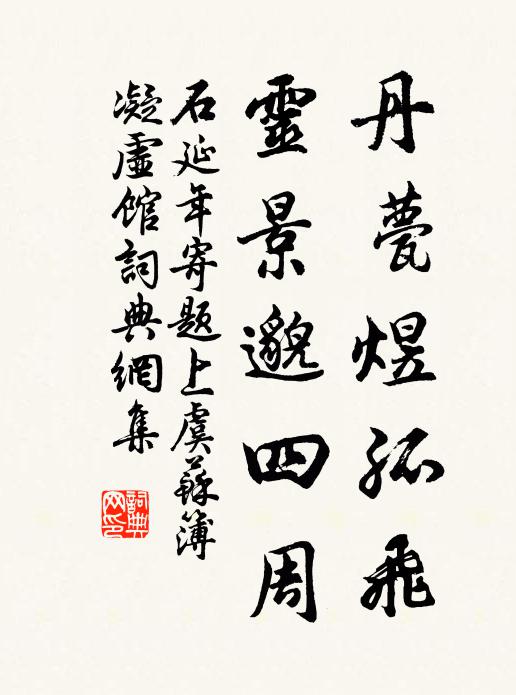 丹甍煜孤飛
靈景邈四周
石延年寄題上虞蘇簿
凝虛館詞典網集
詞典網印